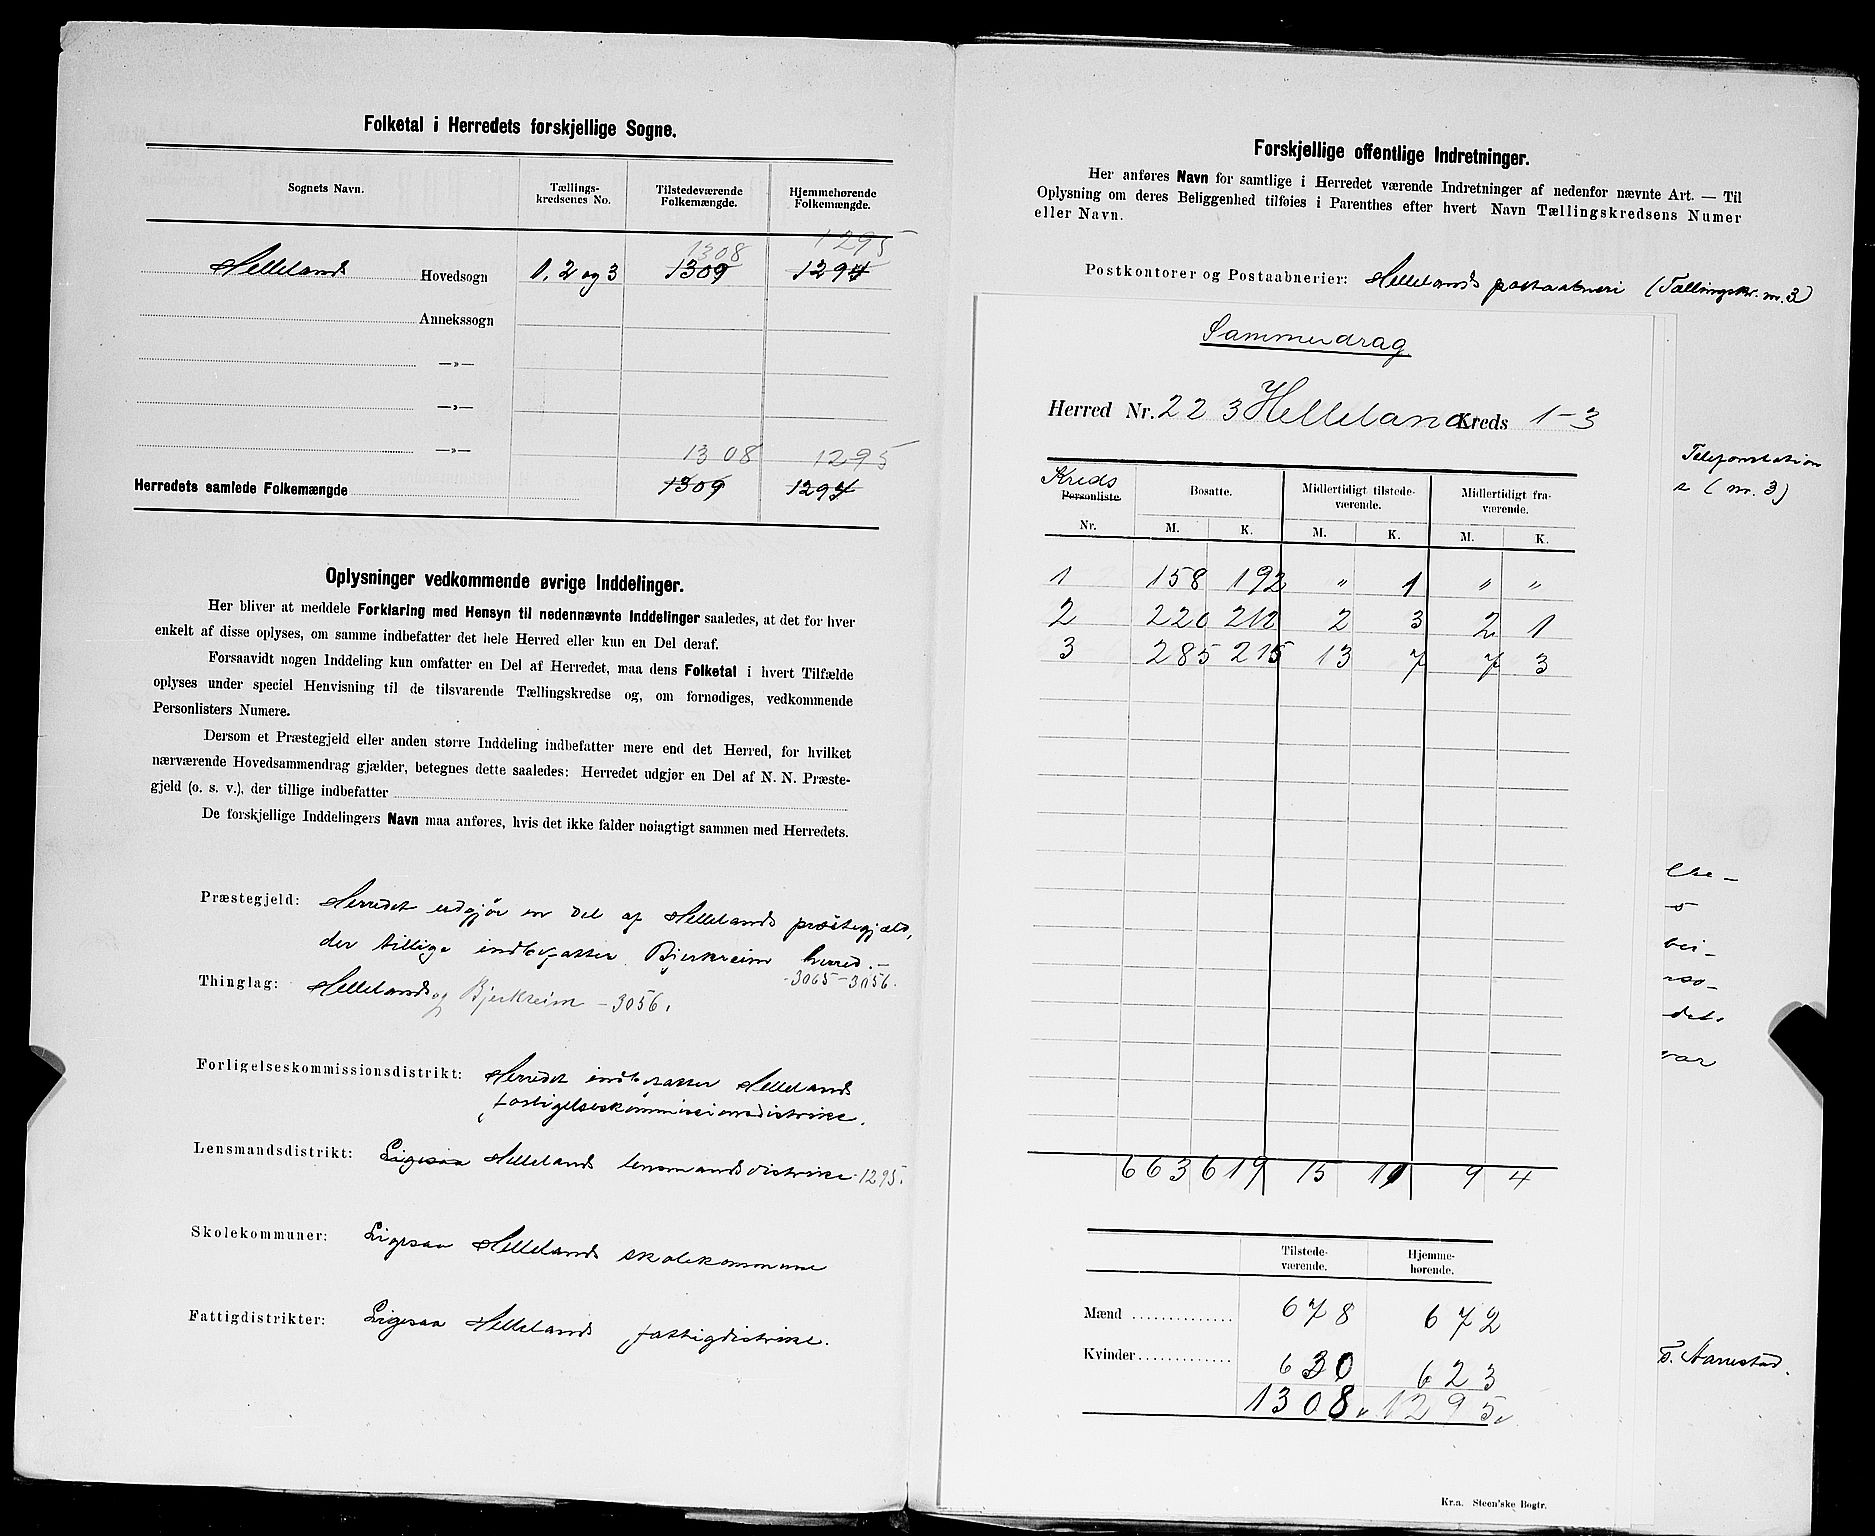 Folketal i Herredets forskjellige Sogne.
Sognets Navn. Tællings-kredsenes No. Tilstedeværende Folkemængde. Hjemmehørende Folkemængde.
1308 1295
Hellelands Hovedsogn 1, 2 og 3 1309 1294
Annekssogn
—»—
—»—
1308 1295
—»—
Herredets samlede Folkemængde 1309 1294
Oplysninger vedkommende øvrige Inddelinger.
Her bliver at meddele Forklaring med Hensyn til nedennævnte Inddelinger saaledes, at det for hver
enkelt af disse oplyses, om samme indbefatter det hele Herred eller kun en Del deraf.
Forsaavidt nogen Inddeling kun omfatter en Del af Herredet, maa dens Folketal i hvert Tilfælde
oplyses under speciel Henvisning til de tilsvarende Tællingskredse og, om fornødiges, vedkommende
Personlisters Numere.
Dersom et Præstegjeld eller anden større Inddeling indbefatter mere end det Herred, for hvilket
nærværende Hovedsammendrag gjælder, betegnes dette saaledes: Herredet udgjør en Del af N. N. Præste-
gjeld (o. s. v.), der tillige indbefatter
De forskjellige Inddelingers Navn maa anføres, hvis det ikke falder nøiagtigt sammen med Herredets.
Præstegjeld: Herredet udgjør en del af Hellelands præstegjæld,
der tillige indbefatter Bjerkreim herred.—
-3065-3056.
Thinglag: Hellelands og Bjerkreim -3056.
Forligelseskommissionsdistrikt: Herredet indbefatter Hellelands
forligelseskommissionsdistrikt.
Lensmandsdistrikt: Ligesaa Hellelands lensmandsdistrikt 1295.
Skolekommuner: Ligesaa Hellelands skolekommune
Fattigdistrikter: Ligesaa Hellelands fattigdistrikt.
Forskjellige offentlige Indretninger.
Her anføres Navn for samtlige i Herredet værende Indretninger af nedenfor nævnte Art. — Til
Oplysning om deres Beliggenhed tilføies i Parenthes efter hvert Navn Tællingskredsens Numer
eller Navn.
Postkontorer og Postaabnerier: Hellelands postaabneri (Tællingskr. nr. 3)
Sammendrag
Herred Nr. 223 Helleland Kreds 1-3
Kreds
Personliste. Bosatte. Midlertidigt tilstede-værende. Midlertidigt fra-værende.
Nr. M. K. M. K. M. K.
1 158 192 " 1 " "
2 220 212 2 3 2 1
3 285 215 13 7 7 3
663 619 15 11 9 4
Tilstede-værende. Hjemme-hørende.
Mænd 678 672
Kvinder 630 623
1308 1295
Kr.a. Steen'ske Bogtr.
Telefonstation
(nr. 3)
bei-
rso-
det.
var